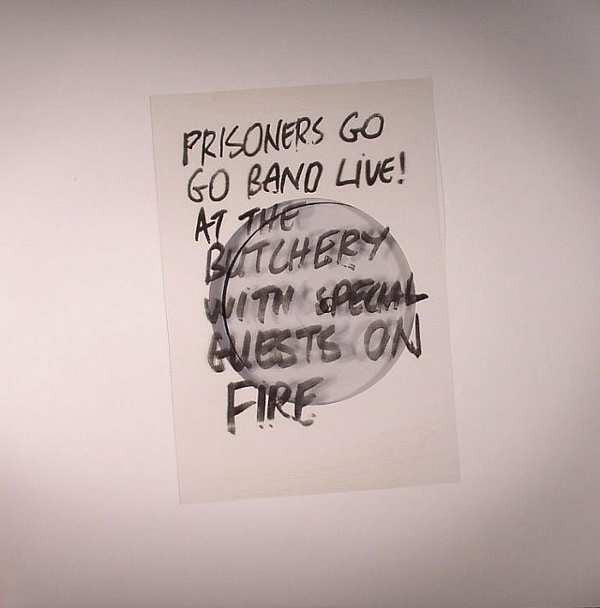 PRISONERS GO
GO BAND LIVE!
AT THE
BUTCHERY
WITH SPECIAL
GUESTS ON
FIRE